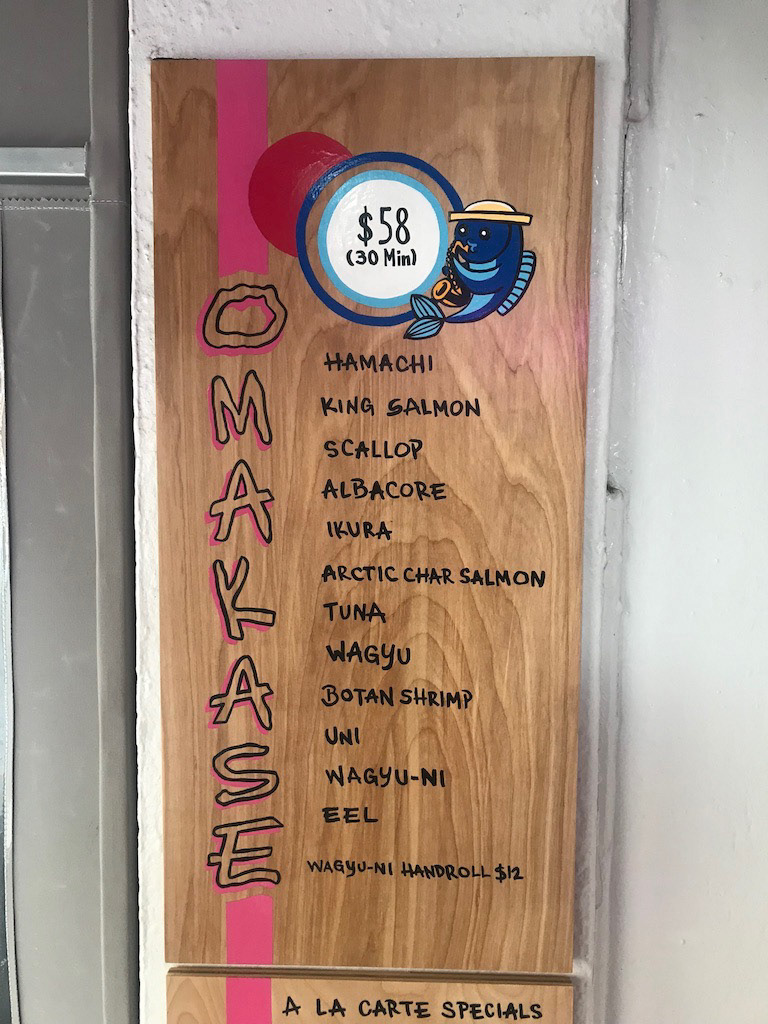 $58
(30 Min)
OMAKASE
HAMACHI
KING SALMON
SCALLOP
ALBACORE
IKURA
ARCTIC CHAR SALMON
TUNA
WAGYU
BOTAN SHRIMP
UNI
WAGYU-NI
EEL
WAGYU-NI HANDROLL $12
A LA CARTE SPECIALS